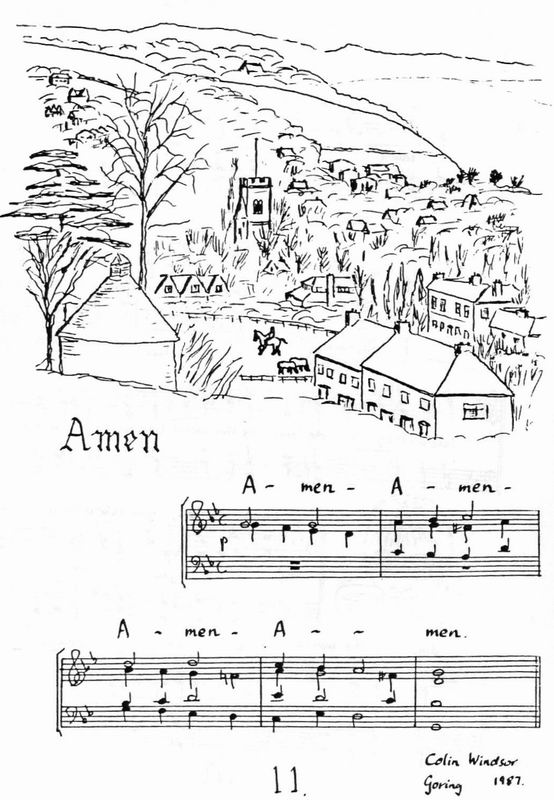 Amen
A - men - A - men -
p
A - men - A - - men.
Colin Windsor
Goring 1987.
11.